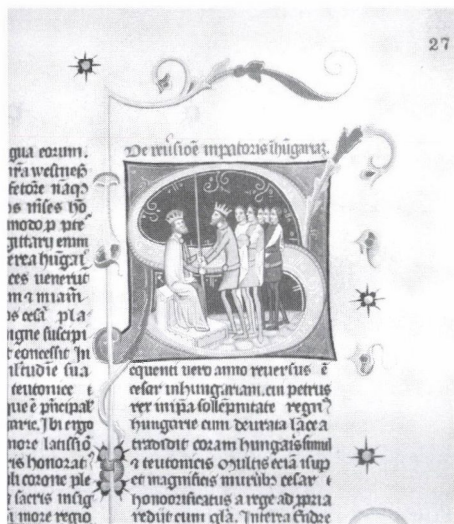 27
gua eorum.
fetore naqꝫ
modo p pte
gittarii enim
erea hūgai
ces uenerūt
m ⁊ miam
os cesar pla
igne suscepi
t concessit In
ilitudīe sua
teutonice ⁊
que ē pͥncipal
garie. Ibi ergo
more latissīo
ris honoratꝰ
ili corone ple
sacris insig
more regio
De reūsiōe inpatoris ī hūgariaꝫ.
S
equenti uero anno reuersus ē
cesar in hungariam. cui petrus
rex in ip̄a sollēpnitate regnū
hungarie cum deurata lācea
tradidit coram hungaris simul
⁊ teutonicis Multis eciā īsup
et magnificis munīb cesar ⁊
honoorificatus a rege ad ppria
redijt cum gl̄a. Interea Endre